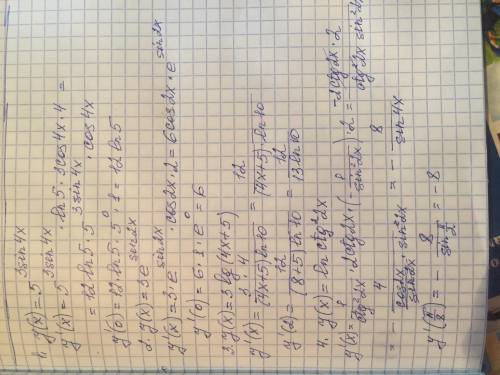 1. y(x) = 5^{3sin4x}
y'(x) = 5^{3sin4x} · ln5 · 3cos4x · 4 =
= 12 ln5 · 5^{3sin4x} · cos4x
y'(0) = 12 ln5 · 5^0 · 1 = 12 ln5
2. y(x) = 3e^{sin2x}
y'(x) = 3 · e^{sin2x} · cos2x · 2 = 6cos2x · e^{sin2x}
y'(0) = 6 · 1 · e^0 = 6
3. y(x) = 3 lg(4x+5)
y'(x) = \frac{3 · 4}{(4x+5)ln10} = \frac{12}{(4x+5) · ln10}
y'(2) = \frac{12}{(8+5)ln10} = \frac{12}{13ln10}
4. y(x) = ln ctg²2x
y'(x) = \frac{1}{ctg²2x} · 2ctg2x · (-\frac{1}{sin²2x}) · 2 = \frac{-2ctg2x · 2}{ctg²2x sin²2x} =
= -\frac{4}{\frac{cos2x}{sin2x} · sin²2x} = -\frac{8}{sin4x}
y'(\frac{π}{8}) = -\frac{8}{sin\frac{π}{2}} = -8